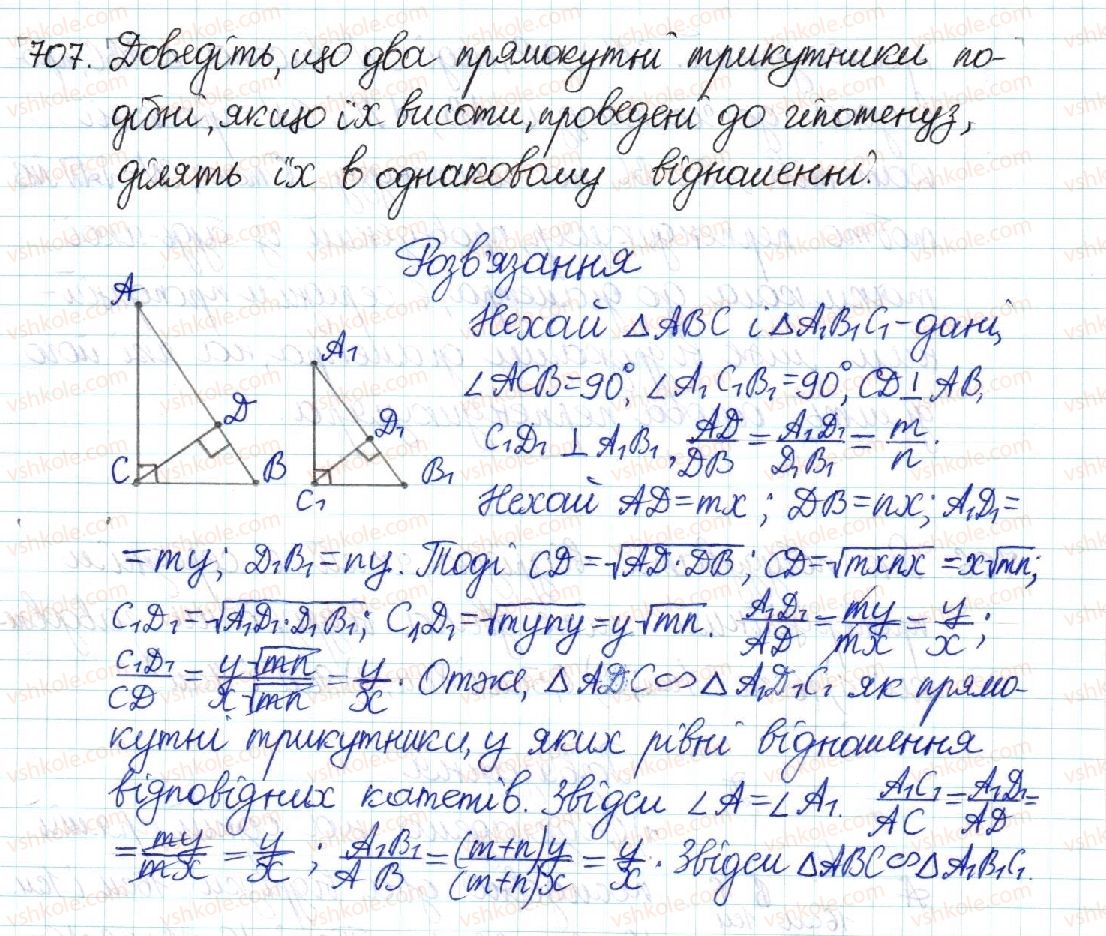 707. Доведіть, що два прямокутні трикутники по-
дібні, якщо їх висоти, проведені до гіпотенуз,
ділять їх в однаковому відношенні.
Розв'язання
A
D
C
B
A₁
D₁
C₁
B₁
Нехай △ABC і △A₁B₁C₁ – дані,
∠ACB = 90°, ∠A₁C₁B₁ = 90°, CD ⊥ AB,
C₁D₁ ⊥ A₁B₁, AD/DB = A₁D₁/D₁B₁ = m/n.
Нехай AD = mx; DB = nx; A₁D₁ =
= my; D₁B₁ = ny. Тоді CD = √(AD·DB); CD = √(mxnx) = x√(mn);
C₁D₁ = √(A₁D₁·D₁B₁); C₁D₁ = √(myny) = y√(mn). A₁D₁/AD = my/mx = y/x;
C₁D₁/CD = y√(mn)/x√(mn) = y/x. Отже, △ADC ∽ △A₁D₁C₁ як прямо-
кутні трикутники, у яких рівні відношення
відповідних катетів. Звідси ∠A = ∠A₁. A₁C₁/AC = A₁D₁/AD =
= my/mx = y/x; A₁B₁/AB = (m+n)y/(m+n)x = y/x. Звідси △ABC ∽ △A₁B₁C₁.
vshkole.com